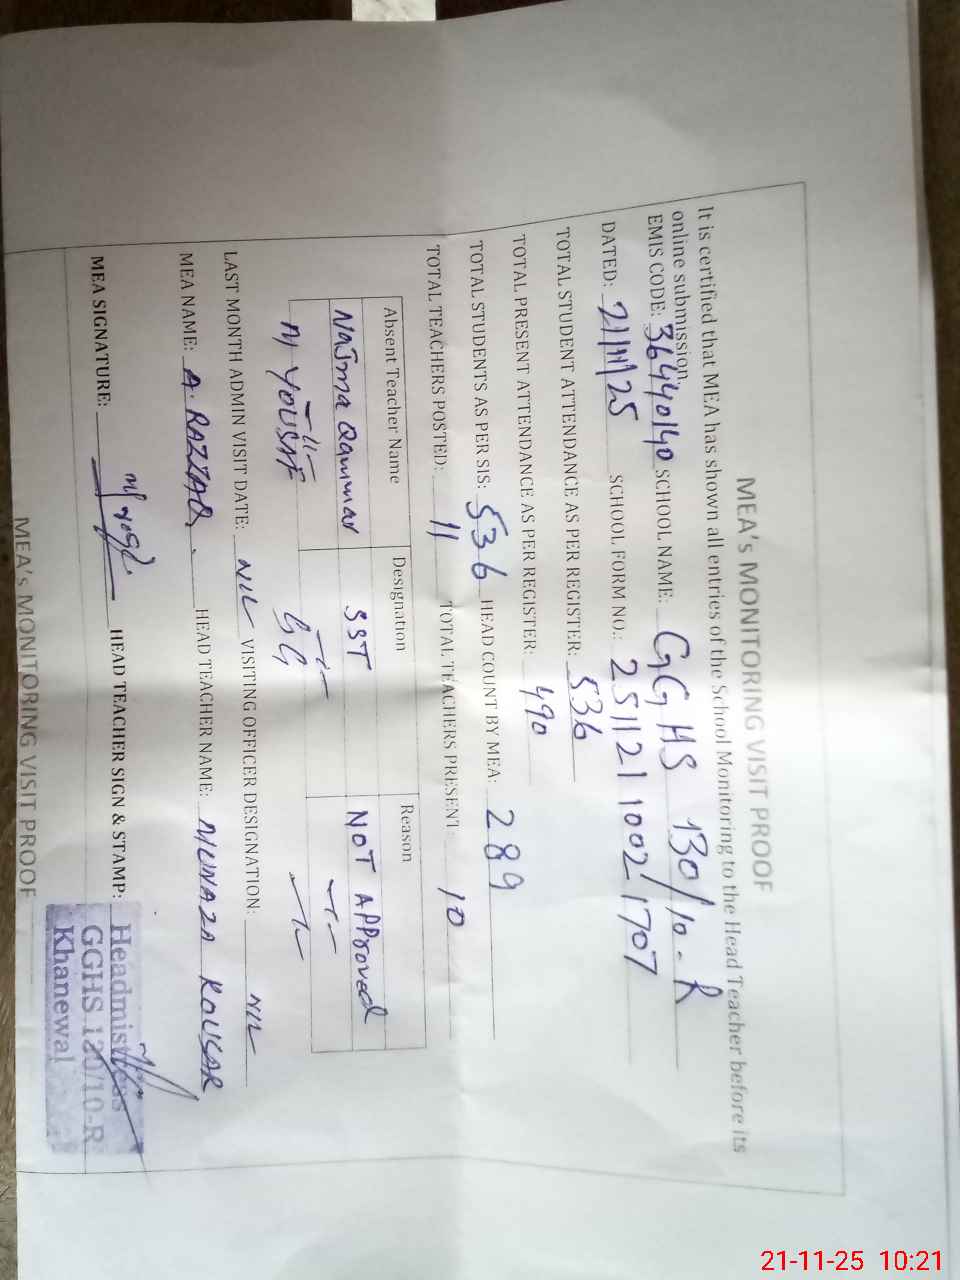 MEA's MONITORING VISIT PROOF
It is certified that MEA has shown all entries of the School Monitoring to the Head Teacher before its
online submission.
EMIS CODE: 36440140 SCHOOL NAME: GGHS 130/10-R
DATED: 21/11/25 SCHOOL FORM NO.: 25112110021707
TOTAL STUDENT ATTENDANCE AS PER REGISTER: 536
TOTAL PRESENT ATTENDANCE AS PER REGISTER: 490
TOTAL STUDENTS AS PER SIS: 536 HEAD COUNT BY MEA: 289
TOTAL TEACHERS POSTED: 11 TOTAL TEACHERS PRESENT: 10
Absent Teacher Name Designation Reason
Najma Qammar SST NOT APProved
M YOUSAF
LAST MONTH ADMIN VISIT DATE: NIL VISITING OFFICER DESIGNATION: NIL
MEA NAME: A. RAZZAQ. HEAD TEACHER NAME: MUNAZA KOUSAR
MEA SIGNATURE: HEAD TEACHER SIGN & STAMP:
Headmistress
GGHS 120/10-R
Khanewal
MEA's MONITORING VISIT PROOF
21-11-25 10:21